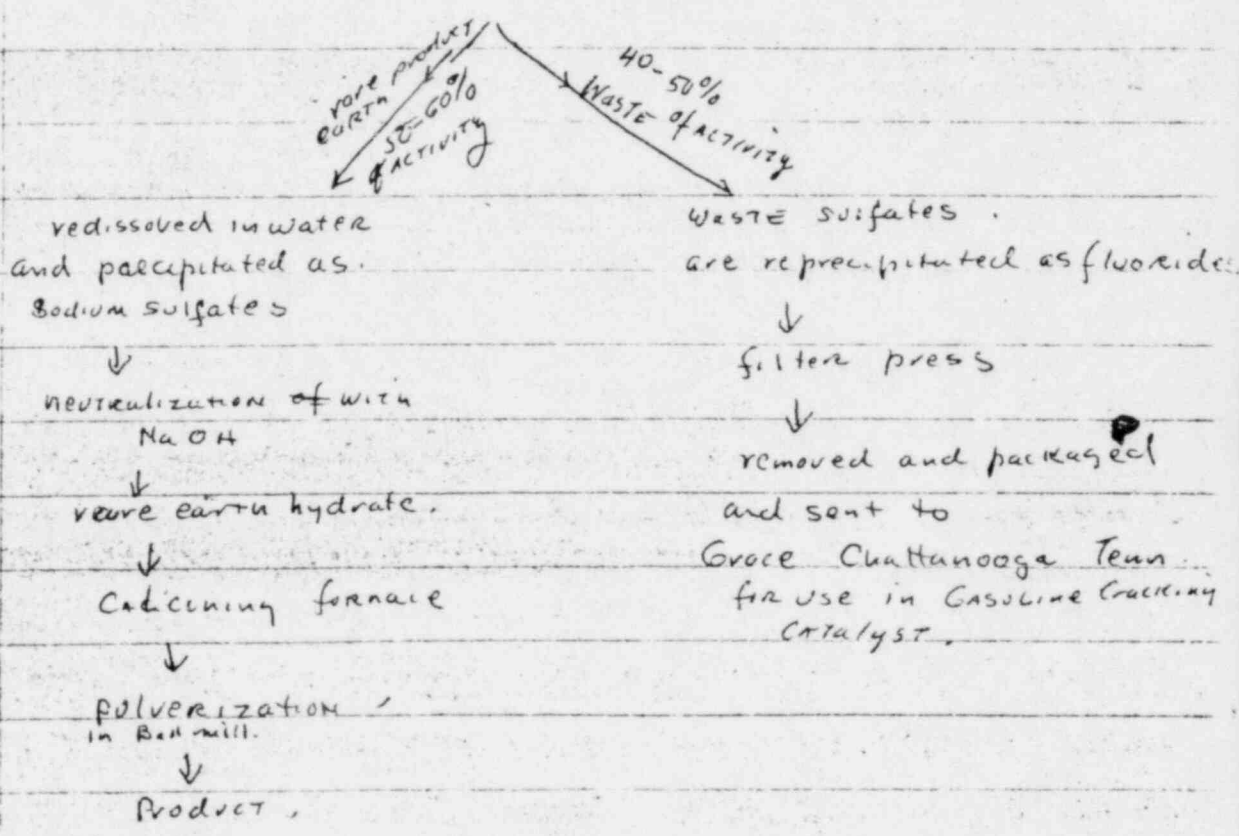 rare product
earth
50-60%
of activity
40-50%
Waste of activity
redissoved in water
and paecipitated as
Sodium sulfates
↓
neutralization of with
NaOH
↓
rare earth hydrate.
↓
Calicining fornace
↓
Pulverization
in Ball mill.
↓
Product.
Waste sulfates.
are reprecipitated as fluorides
↓
filter press
↓
removed and packaged
and sent to
Grace Chattanooga Tenn.
for use in Gasoline Cracking
Catalyst.